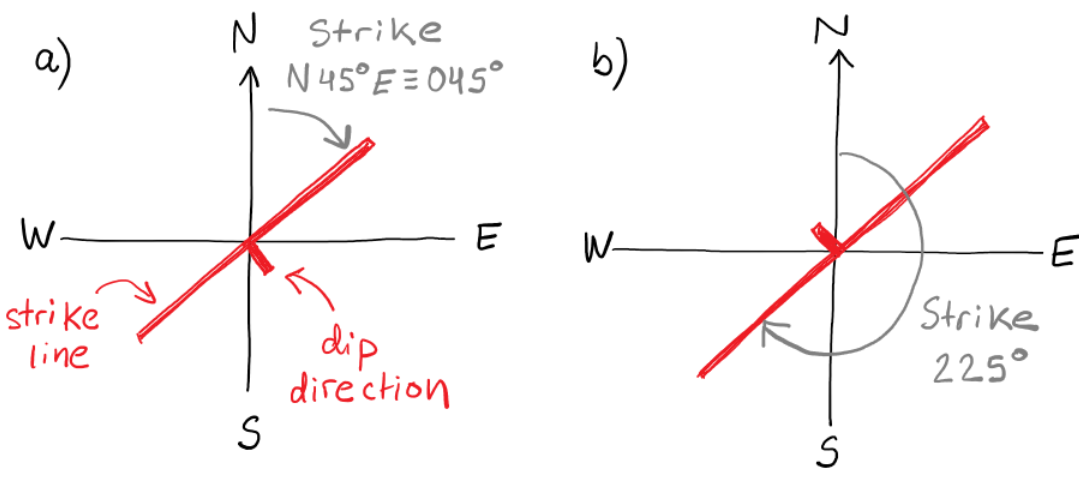 a)
N
Strike
N45°E≡045°
W
E
strike
line
dip
direction
S
b)
N
W
E
Strike
225°
S